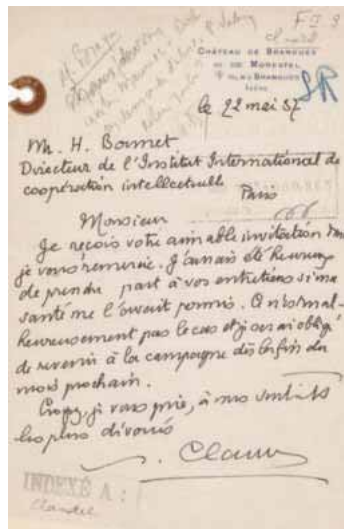 F II 9
CHÂTEAU DE BRANGUES
PAR MORESTEL
BRANGUES
ISÈRE
SR
le 22 mai 37
Mr. H. Bonnet
Directeur de l'Institut International de
coopération intellectuelle
Paris
Monsieur
Je reçois votre aimable invitation dont
je vous remercie. J'aurais été heureux
de prendre part à vos entretiens si ma
santé me l'avait permis. Ce n'est mal-
heureusement pas le cas et je serai obligé
de revenir à la campagne dès la fin du
mois prochain.
Croyez, je vous prie, à mes sentiments
les plus dévoués
P. Claudel
INDEXÉ A :
Claudel